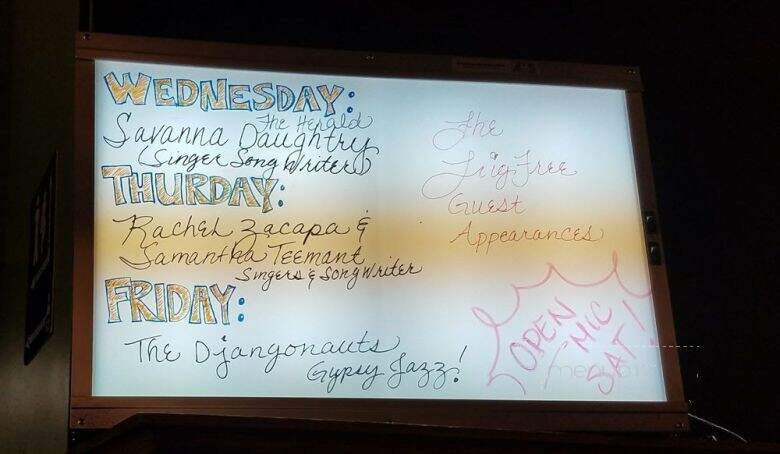 WEDNESDAY:
The Herald
Savanna Daughtry
(Singer Song Writers)
THURDAY:
Rachel Zacapa &
Samantha Teemant
Singers & Song Writer
FRIDAY:
The Djangonauts
Gypsy Jazz!
The
Guest
Appearances
OPEN
MIC
SAT!